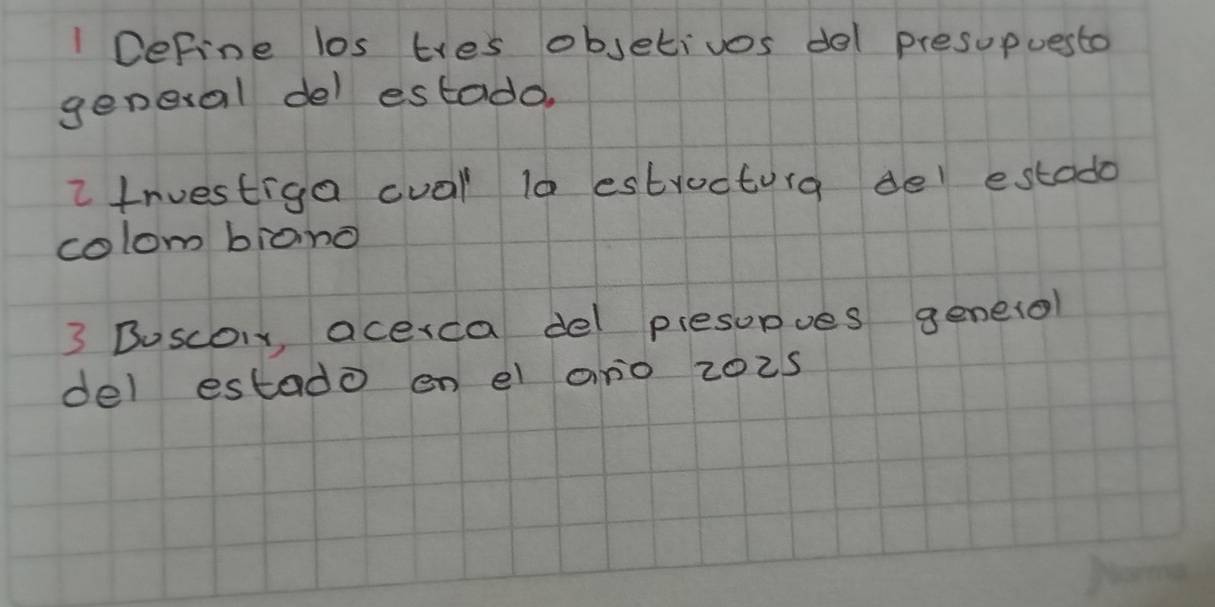 1 Define los tres objetivos del presupuesto
general del estado.
2 Investiga cual la estructura del estado
colombiano
3 Buscar, acerca del presupues general
del estado en el año 2025
Norma